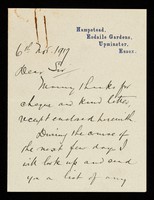 Hampstead,
Rodails Gardens,
Upminster,
Essex.
6th Nov. 1919
Dear Sir
Many thanks for
cheque and kind letter,
receipt enclosed herewith
During the course of
the next few days I
will look up and send
you a list of any